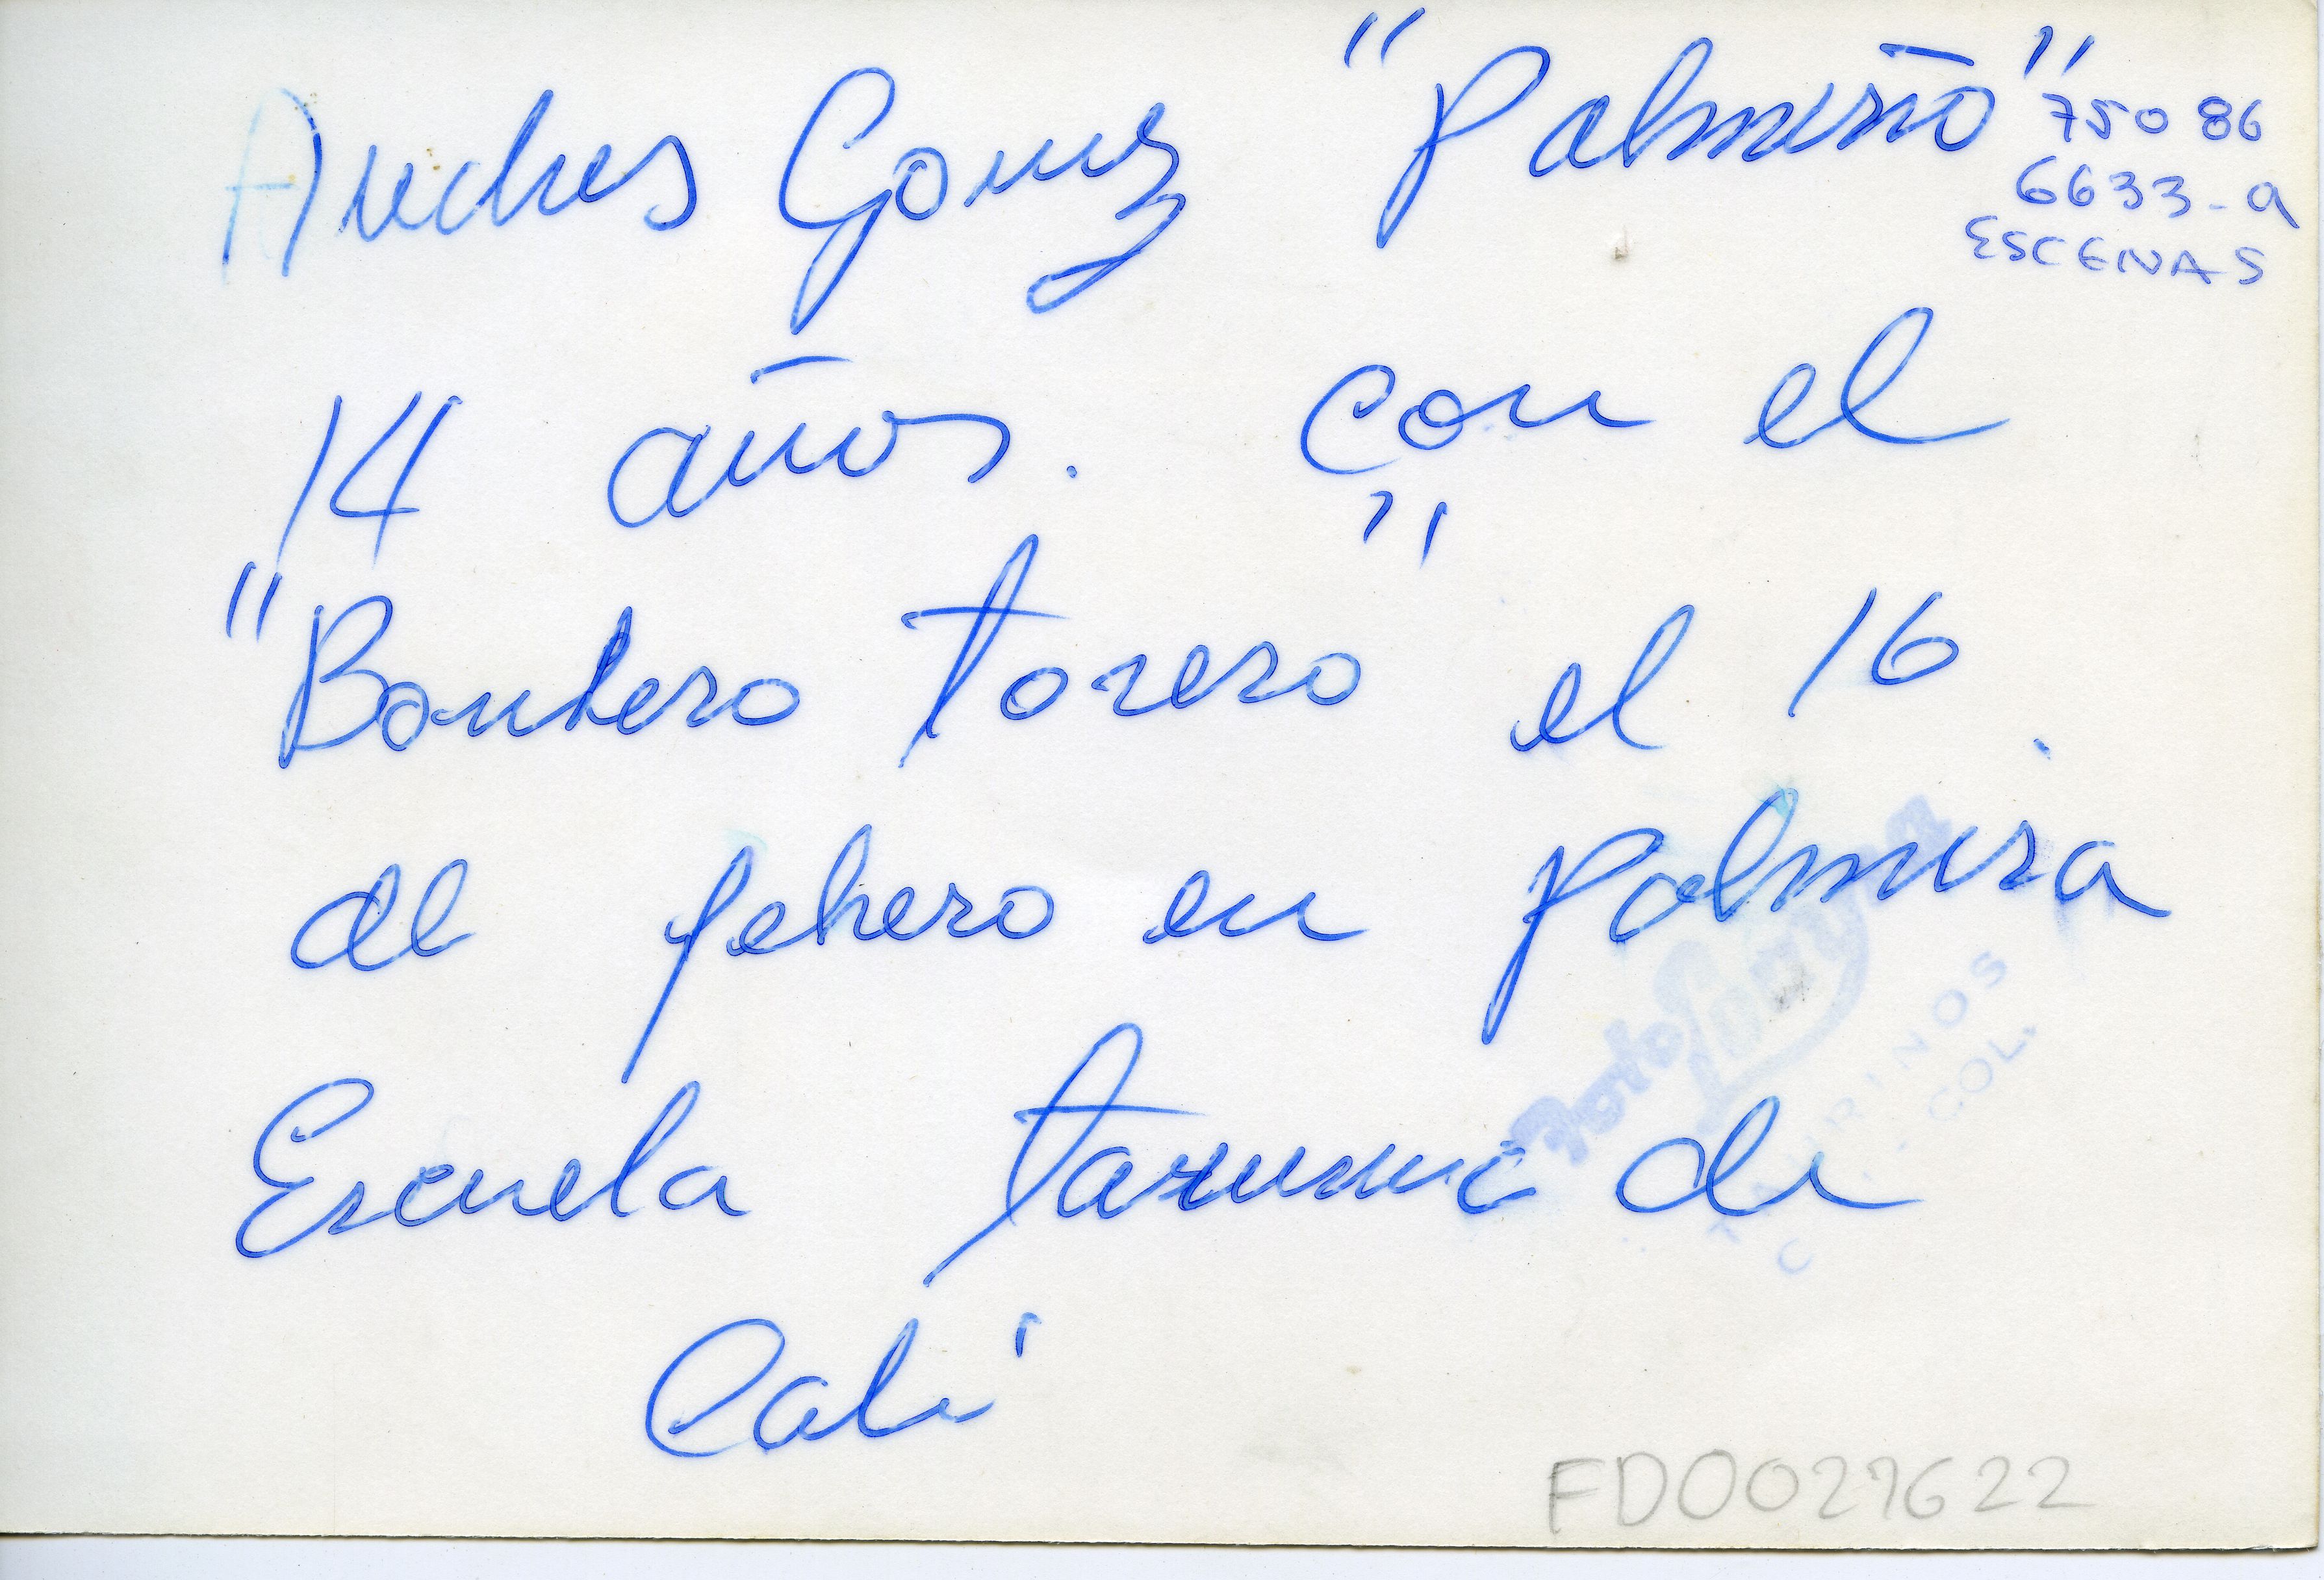 Andres Gomez "Palmireño"
750 86
6633-a
ESCENAS
14 años. con el
"Bombero torero" el 16
de febrero en Palmira
Escuela taurina de
Cali
Foto
TAURINOS
COL.
FD0027622